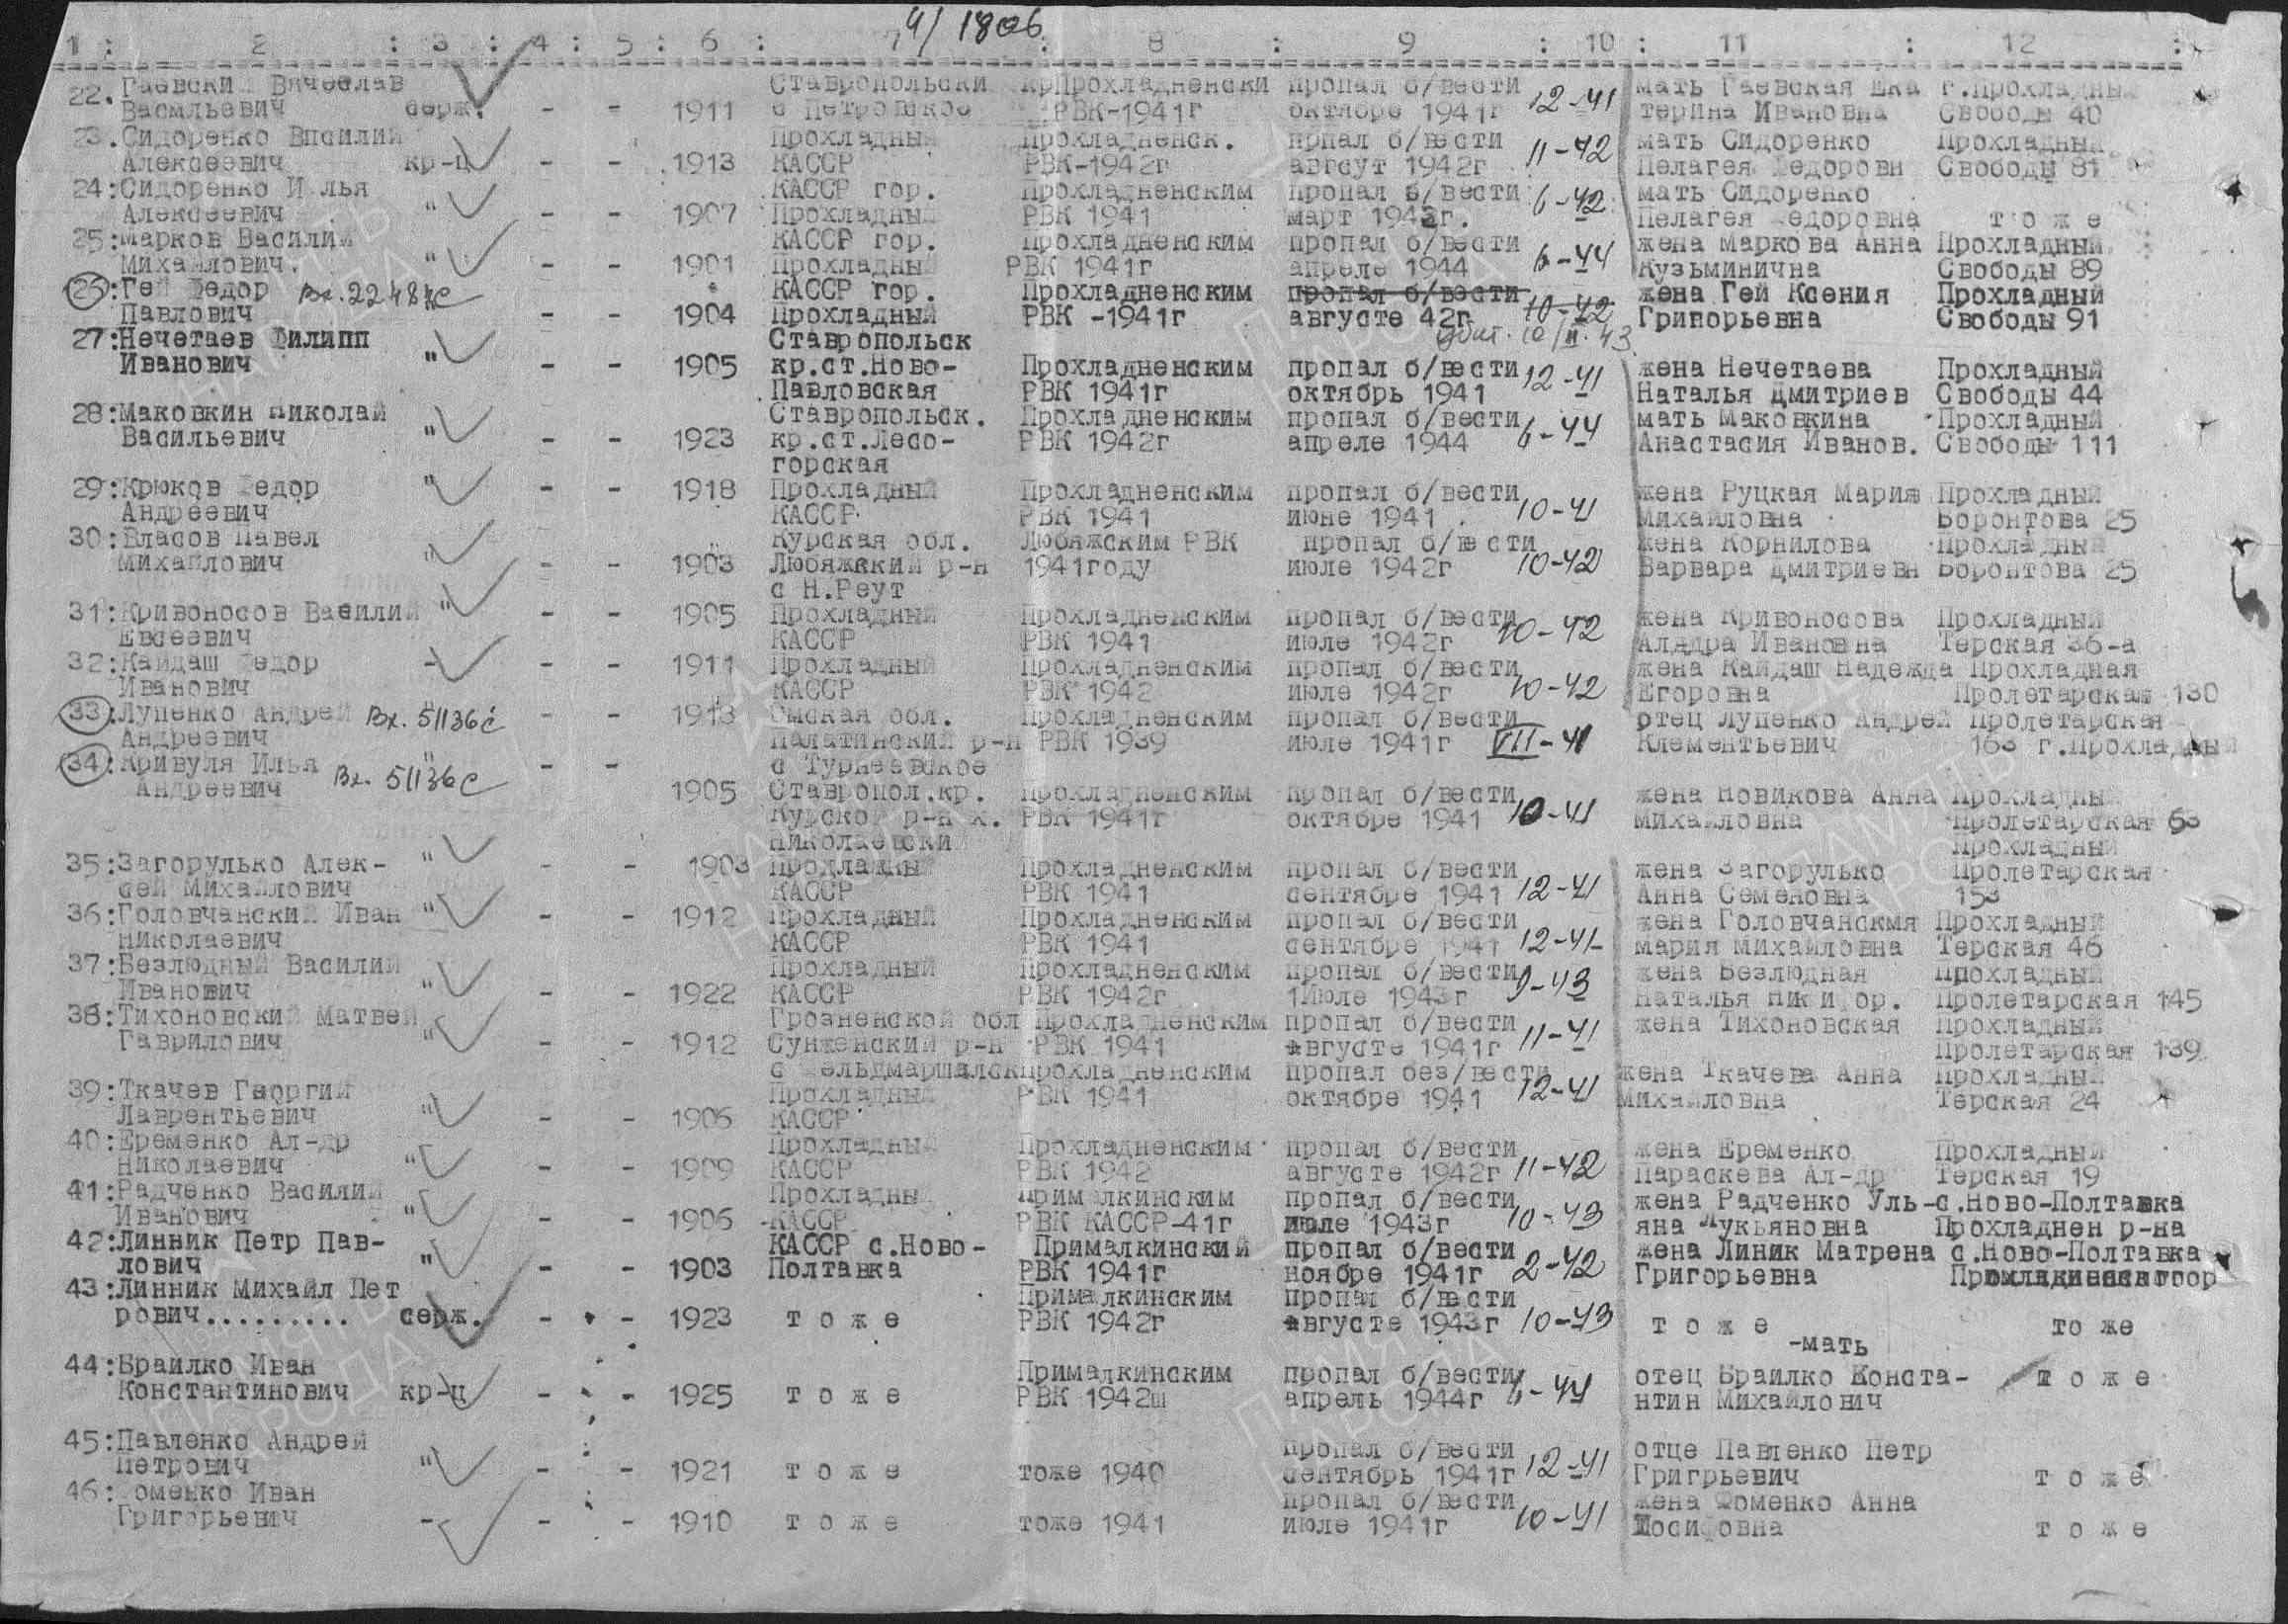 4/1806
1 : 2 : 3 : 4 : 5 : 6 : 7 : 8 : 9 : 10 : 11 : 12 :
22. Гаевский Вячеслав Ставропольски кр Прохладненски пропал б/вести мать Гаевская Эка г.Прохладный
Васмльевич серж. - - 1911 с Петровское РВК-1941г октябре 1941г 12-41 терина Ивановна Свободы 40
23. Сидоренко Впсилий Прохладный Прохладненск. прпал б/вести мать Сидоренко Прохладный
Алексеевич кр-ц - - 1913 КАССР РВК-1942г авгсут 1942г 11-42 Пелагея Федоровн Свободы 81
24:Сидоренко Илья КАССР гор. Прохладненским пропал б/вести мать Сидоренко
Алексеевич " - - 1907 Прохладный РВК 1941 март 1942г. 6-42 Пелагея Федоровна т о ж е
25:Марков Василий КАССР гор. Прохладненским пропал б/вести жена Маркова Анна Прохладный
Михайлович. " - - 1901 Прохладный РВК 1941г апреле 1944 6-44 Кузьминична Свободы 89
26:Гей Федор Вх.22487с КАССР гор. Прохладненским пропал б/вести жена Гей Ксения Прохладный
Павлович - - 1904 Прохладный РВК -1941г августе 42г 10-42 Григорьевна Свободы 91
27:Нечетаев Филипп Ставропольск убит. 10/II.43
Иванович " - - 1905 кр.ст.Ново- Прохладненским пропал б/вести 12-41 жена Нечетаева Прохладный
Павловская РВК 1941г октябрь 1941 Наталья Дмитриев Свободы 44
28:Маковкин Николай Ставропольск. Прохладненским пропал б/вести мать Маковкина Прохладный
Васильевич " - - 1923 кр.ст.Лесо- РВК 1942г апреле 1944 6-44 Анастасия Иванов. Свободы 111
горская
29:Крюков Федор " - - 1918 Прохладный Прохладненским пропал б/вести жена Руцкая Мария Прохладный
Андреевич КАССР РВК 1941 июне 1941 . 10-41 Михайловна Воронтова 25
30:Власов Павел Курская обл. Любяжским РВК пропал б/вести жена Корнилова Прохладный
Михайлович " - - 1903 Любяжский р-н 1941году июле 1942г 10-42 Варвара Дмитриевн Воронтова 25
с Н.Реут
31:Кривоносов Василий " - - 1905 Прохладный Прохладненским пропал б/вести жена Кривоносова Прохладный
Евсеевич КАССР РВК 1941 июле 1942г 10-42 Алядра Ивановна Терская 36-а
32:Кайдаш Федор - - - 1911 Прохладный Прохладненским пропал б/вести жена Кайдаш Надежда Прохладная
Иванович КАССР РВК 1942 июле 1942г 10-42 Егоровна Пролетарская 130
33:Лупенко Андрей Вх. 51136с - - 1913 Омская обл. Прохладненским пропал б/вести отец Лупенко Андрей Пролетарская
Андреевич Палатинский р-н РВК 1939 июле 1941г VII-41 Клементьевич 163 г.Прохладный
34:Кривуля Илья " - - с Турнеевское
Андреевич Вх. 51136с 1905 Ставропол.кр. Прохладненским пропал б/вести жена Новикова Анна Прохладный
Курской р-н х. РВК 1941г октябре 1941 10-41 Михайловна Пролетарская 63
Николаевский Прохладный
35:Загорулько Алек- " - - 1903 Продладный Прохладненским пропал б/вести жена Загорулько Пролетарская
сей Михайлович КАССР РВК 1941 сентябре 1941 12-41 Анна Семеновна 153
36:Головчанский Иван " - - 1912 Прохладный Прохладненским пропал б/вести жена Головчанскмя Прохладный
Николаевич КАССР РВК 1941 сентябре 1941 12-41 Мария Михайловна Терская 46
37:Безлюдный Василий Прохладный Прохладненским пропал б/вести жена Безлюдная Прохладный
Иванович " - - 1922 КАССР РВК 1942г 1Июле 1943г 9-43 Наталья Никифор. Пролетарская 145
38:Тихоновский Матвей Грозненской обл Прохладненским пропал б/вести жена Тихоновская Прохладный
Гаврилович " - - 1912 Сунженский р-н РВК 1941 августе 1941г 11-41 Пролетарская 139
с Фельдмаршалск Прохладненским пропал без/вести жена Ткачева Анна Прохладный
39:Ткачев Георгий Прохладный РВК 1941 октябре 1941 12-41 Михайловна Терская 24
Лаврентьевич " - - 1906 КАССР
40:Еременко Ал-др Прохладный Прохладненским пропал б/вести жена Еременко Прохладный
Николаевич " - - 1909 КАССР РВК 1942 августе 1942г 11-42 Параскева Ал-др Терская 19
41:Радченко Василий Прохладный Прималкинским пропал б/вести жена Радченко Уль-с.Ново-Полтавка
Иванович " - - 1906 КАССР РВК КАССР-41г июле 1943г 10-43 яна Лукьяновна Прохладнен р-на
42:Линник Петр Пав- КАССР с.Ново- Прималкинский пропал б/вести жена Линик Матрена с.Ново-Полтавка
лович " - - 1903 Полтавка РВК 1941г ноябре 1941г 2-42 Григорьевна
43:Линник Михайл Пет Прималкинским пропал б/вести
рович......... серж. - - 1923 т о ж е РВК 1942г августе 1943г 10-43 т о ж е то же
-мать
44:Браилко Иван Прималкинским пропал б/вести отец Браилко Конста- т о ж е
Константинович кр-ц - - 1925 т о ж е РВК 1942ш апрель 1944г 6-44 нтин Михайлович
45:Павленко Андрей пропал б/вести отце Павленко Петр
Петрович " - - 1921 т о ж е тоже 1940 сентябрь 1941г 12-41 Григрьевич т о ж е
46:Фоменко Иван пропал б/вести жена Фоменко Анна
Григорьевич - - - 1910 т о ж е тоже 1941 июле 1941г 10-41 Иосифовна т о ж е